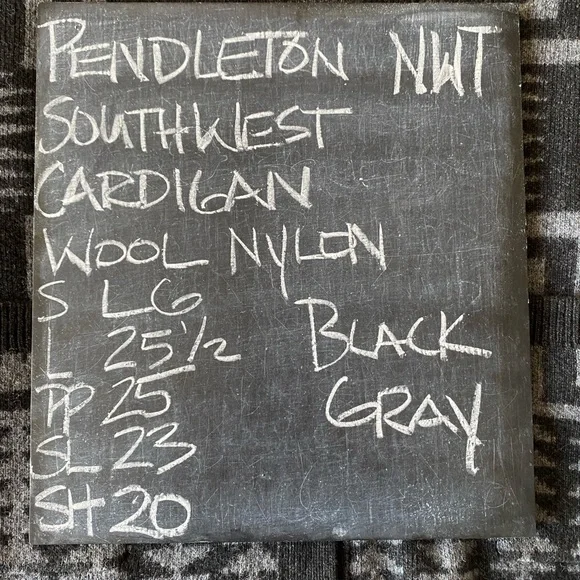 PENDLETON NWT
SOUTHWEST
CARDIGAN
WOOL NYLON
S LG
L 25 1/2
PP 25
SL 23
SH 20
BLACK
GRAY